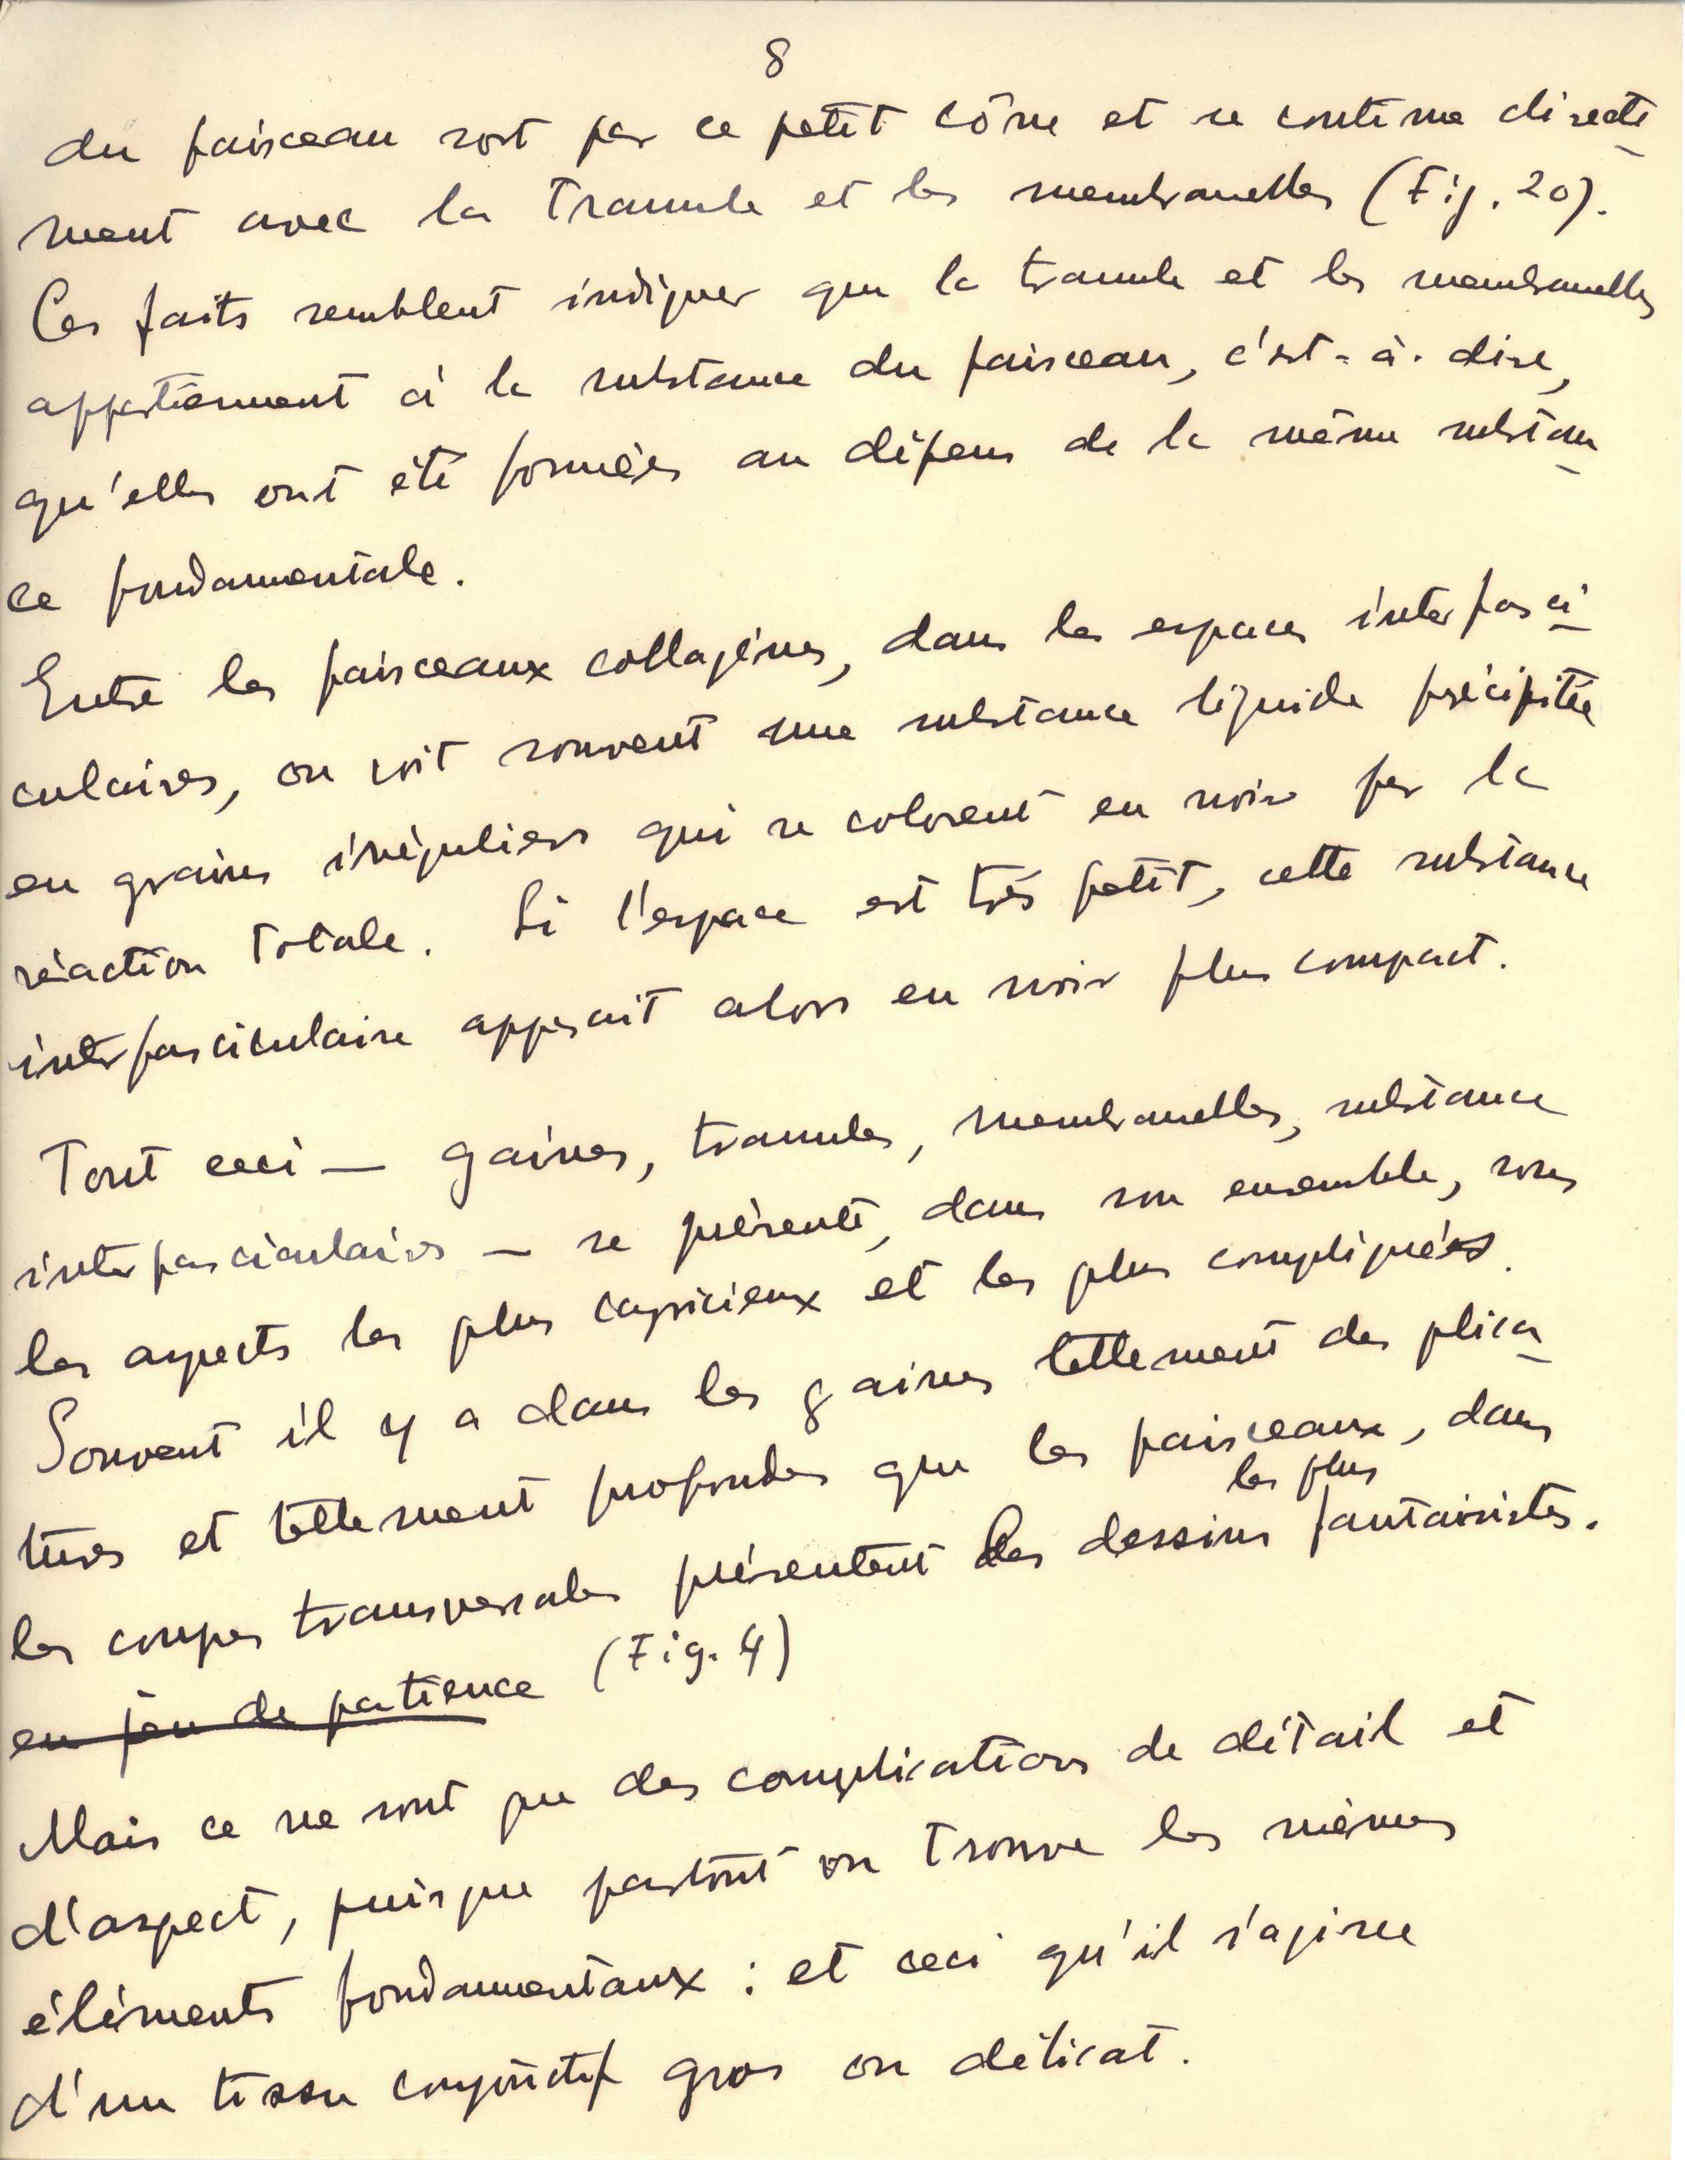 8
du faisceau sort par ce petit cône et se continue directe
ment avec la tramule et les membranelles (Fig. 20).
Ces faits semblent indiquer que la tramule et les membranelles
appartiennent à la substance du faisceau, c'est-à-dire,
qu'elles ont été formées au dépens de la même substan
ce fondamentale.
Entre les faisceaux collagènes, dans les espaces interfasci
culaires, on voit souvent une substance liquide précipitée
en grains irréguliers qui se colorent en noir par la
réaction totale. Si l'espace est très petit, cette substance
interfasciculaire apparait alors en noir plus compact.
Tout ceci — gaines, tramules, membranelles, substance
interfasciculaires — se présente, dans son ensemble, sous
les aspects les plus capricieux et les plus compliqués.
Souvent il y a dans les gaines tellement des plica
tures et tellement profondes que les faisceaux, dans
les plus
les coupes transversales présentent des dessins fantaisistes.
en jeu de patience (Fig. 4)
Mais ce ne sont que des complications de détail et
d'aspect, puisque partout on trouve les mêmes
éléments fondamentaux : et ceci qu'il s'agisse
d'un tissu conjonctif gros ou délicat.